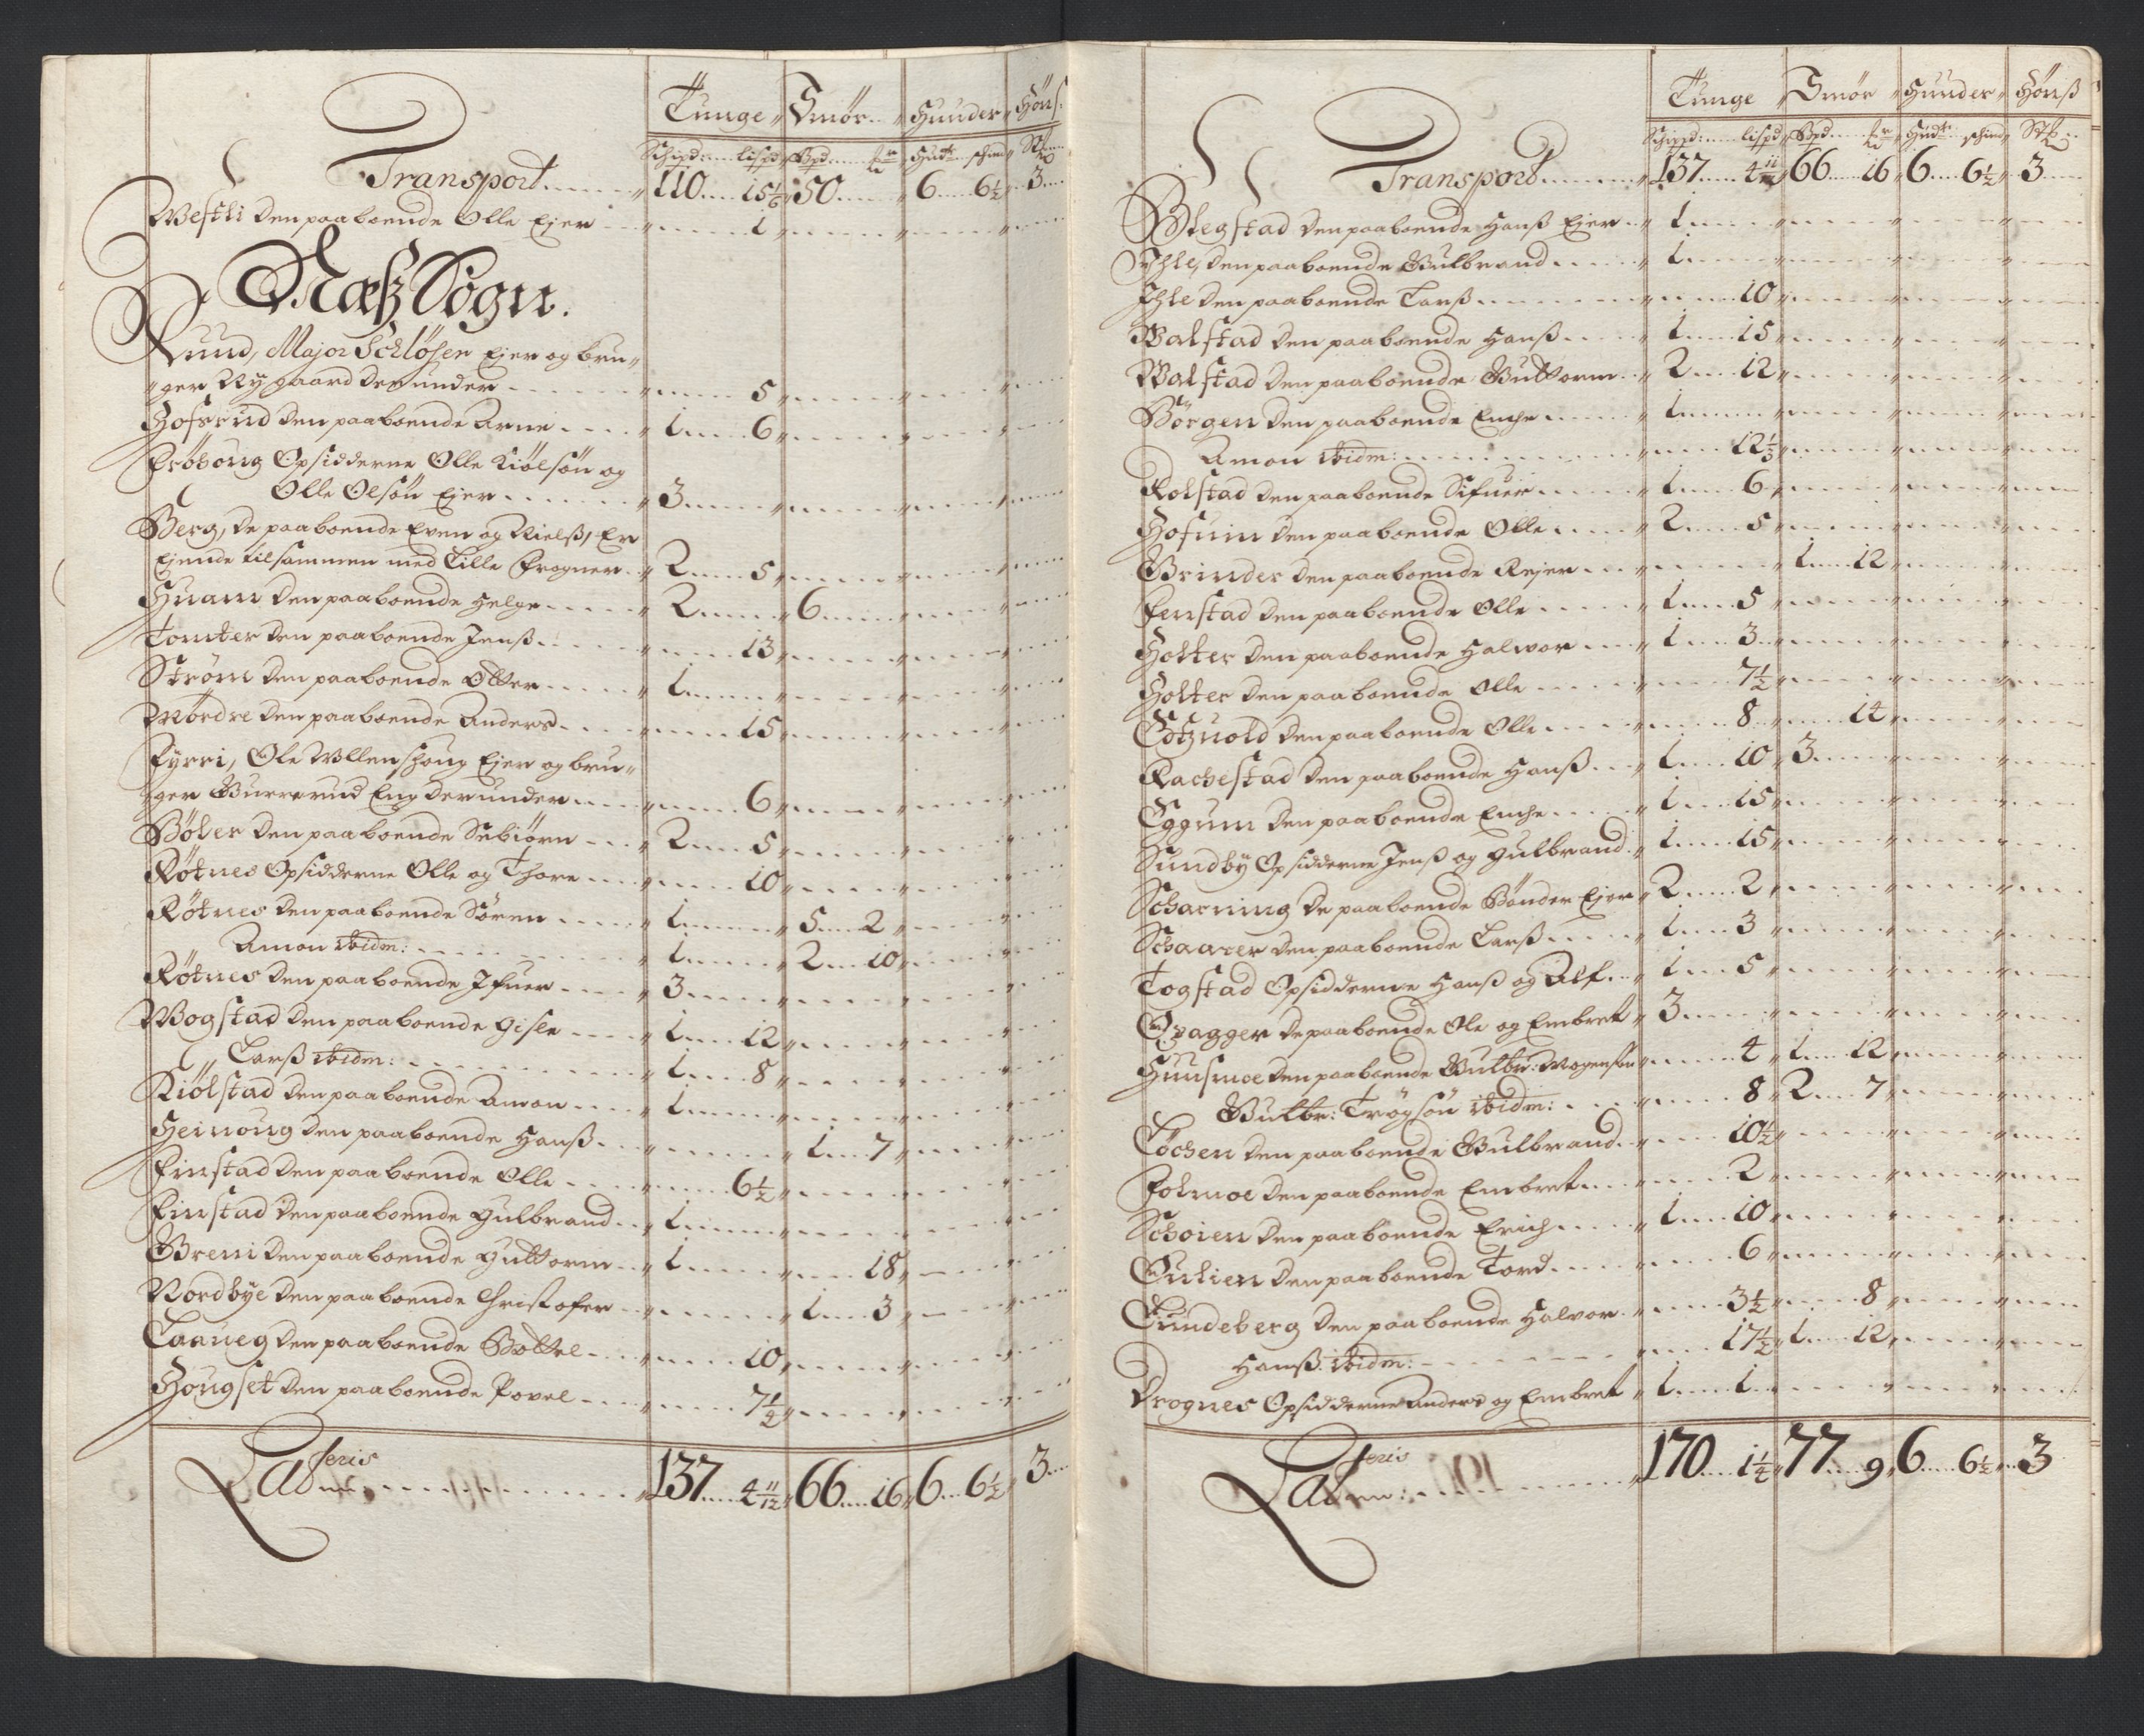 Tunge " Smör " Huuder " Höns:
Schipd: lispd " Bpd " Hudr schind " Stk
Transport 110 15 1/6 " 50 " 6 6 1/2 " 3
Westli den paaboende Olle Ejer 1
Næs Sogn.
Ruud, Major Schlösen Ejer og bru„
„ger Nygaard der under 5
Hofsrud den paaboende Arne 1 6
Frøhoug Opsidderne Olle Kiølsøn og
Olle Olsøn Ejer 3
Berg, de paaboende Even og Nielß, Er
Ejende tilsammen med Lille Frogner 2 5
Huam den paaboende Helge 2 " 6
Tomter den paaboende Jenß 13
Strøm den paaboende Otter 1
Mördre den paaboende Anders 15
Fyrri, Ole Wllenshoug Ejer og bru„
„ger Burrerud Eng der under 6
Böler den paaboende Sebiörn 2 5
Rötnes Opsidderne Olle og Thore 10
Rötnes den paaboende Sören 1 " 5 2
Amon ibidm: 1 " 2 10
Rötnes den paaboende Ifuer 3
Wogstad den paaboende Gisle 1 12
Larß ibidm: 1 8
Kiölstad den paaboende Amon 1
Heinoug den paaboende Hanß 1 7
Finstad den paaboende Olle 6 1/2
Finstad den paaboende Gulbrand 1
Breni den paaboende Guttorm 1 " 18
Nordbye den paaboende Christofer 1 3
Laaueg den paaboende Bottel 10
Hougset den paaboende Povel 7 1/4
Lateris 137 4 11/12 " 66 16 " 6 6 1/2 " 3
Tunge " Smör " Huuder " Hönß
Schippd: lispd " Bpd " Hudr schind " Stk
Transport 137 4 11/12 " 66 16 " 6 6 1/2 " 3
Blegstad den paaboende Hanß Ejer 1
Ihle, den paaboende Gulbrand 1
Ihle den paaboende Larß 10
Walstad den paaboende Hanß 1 15
Walstad den paaboende Guttorm 2 12
Börgen den paaboende Enche 1
Amon ibidm: 12 1/3
Rolstad den paaboende Sifuer 1 6
Hofum den paaboende Olle 2 5
Brinder den paaboende Rejer 1 12
Fenstad den paaboende Olle 1 5
Holter den paaboende Halvor 1 3
Holter den paaboende Olle 7 1/2
Edtzuold den paaboende Olle 8 " 14
Rachestad den paaboende Hanß 1 10 " 3
Eggum den paaboende Enche 1 15
Sundby Opsidderne Jenß og Gulbrand 1 15
Scharning de paaboende Bönder Ejer 2 2
Schaarer den paaboende Larß 1 3
Togstad Opsidderne Hanß og Alf 1 5
Opagger de paaboende Ole og Embret 3
Huusmoe den paaboende Gulbr: Mogensön 4 " 1 12
Gulbr: Trögsön ibidm: 8 " 2 7
Löchen den paaboende Gulbrand 10 1/2
Folmoe den paaboende Embret 2
Schoien den paaboende Erich 1 10
Eulien den paaboende Tord 6
Lundeberg den paaboende Halvor 3 1/2 " 8
Hanß: ibidm: 17 1/2 " 1 12
Drognes Opsidderne Anders og Embret 1 1
Lateris 170 1 1/4 " 77 9 " 6 6 1/2 " 3